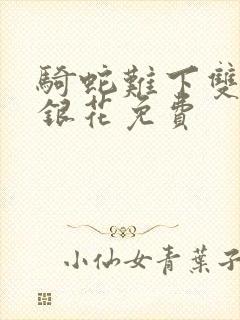 騎蛇難下雙
銀花免費
小仙女青葉子